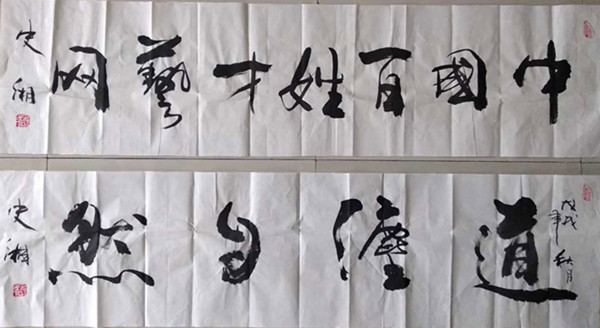 中國百姓才藝网
史湘
戊戌年秋月
道灋自然
史湘